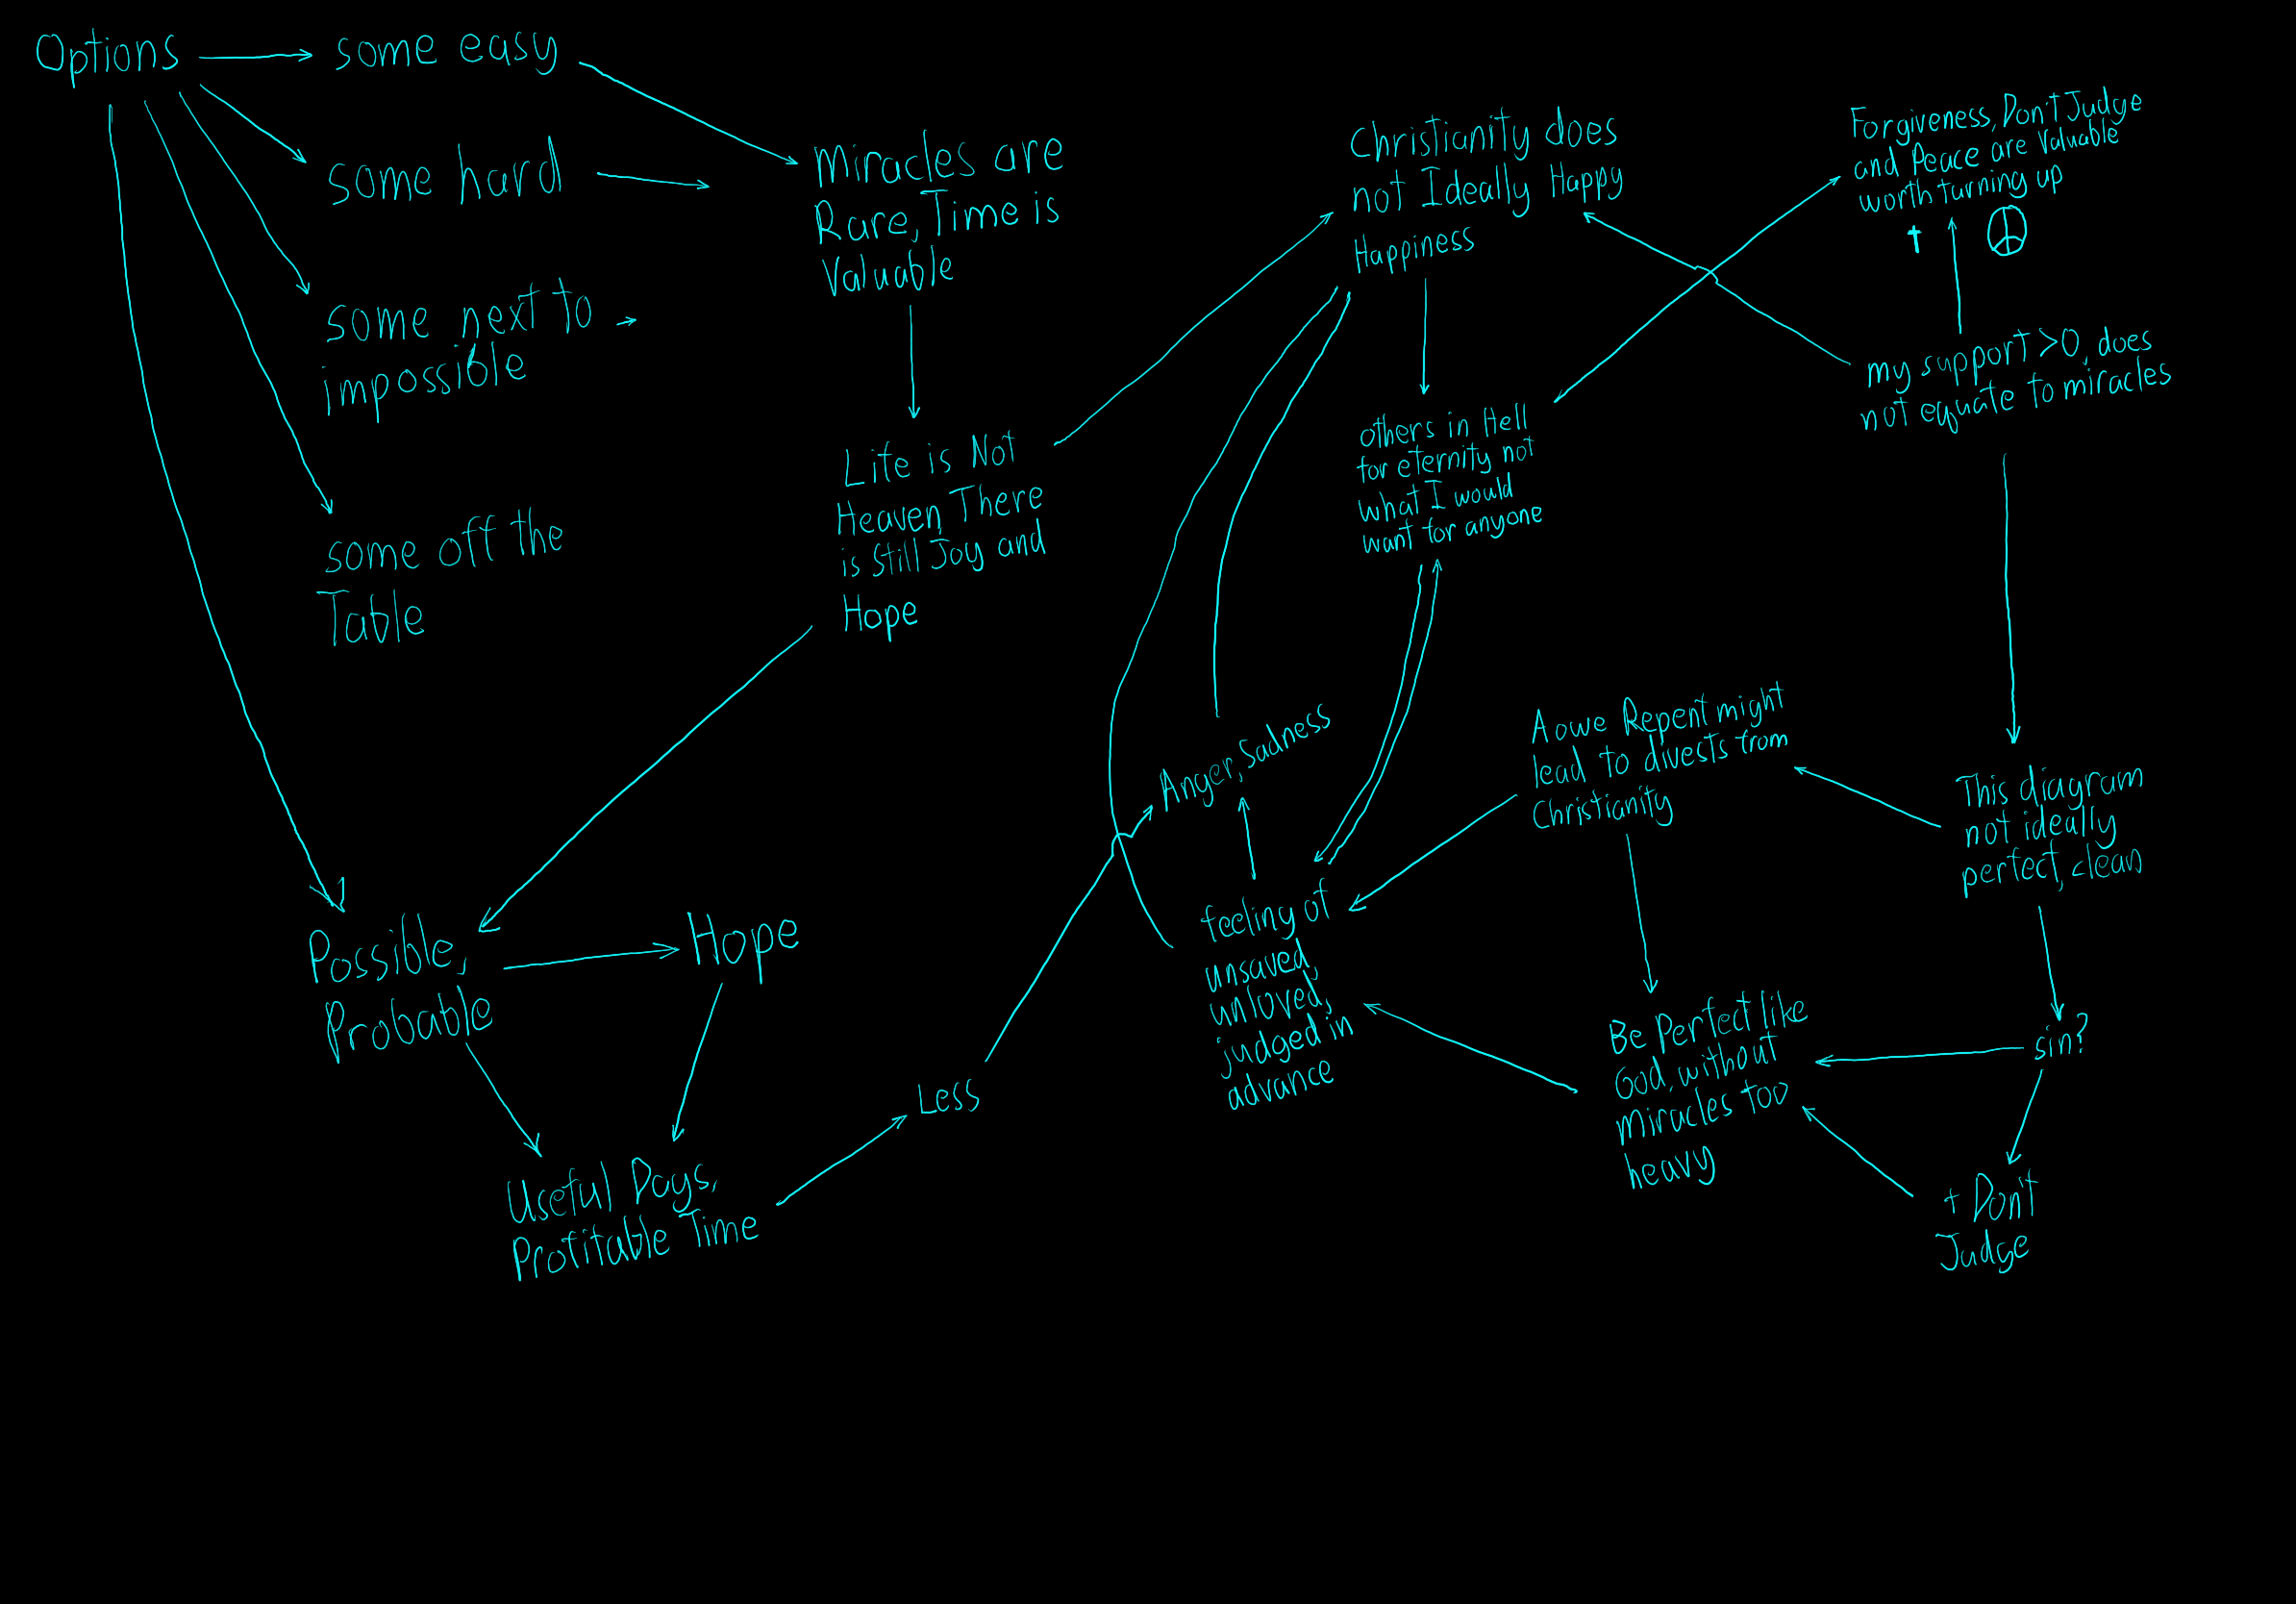 Options
some easy
some hard
some next to
impossible
some off the
Table
Miracles are
Rare, Time is
Valuable
Life is Not
Heaven, There
is Still Joy and
Hope
Possible,
Probable
Hope
Useful Days,
Profitable Time
Less
Anger, Sadness
feeling of
unsaved,
unloved,
judged in
advance
Christianity does
not Ideally Happy
Happiness
others in Hell
for eternity not
what I would
want for anyone
Forgiveness, Don't Judge
and Peace are Valuable
worth turning up
my support >0, does
not equate to miracles
A owe Repent might
lead to divests from
Christianity
This diagram
not ideally
perfect, clean
Be Perfect like
God, without
miracles too
heavy
sin?
+ Don't
Judge